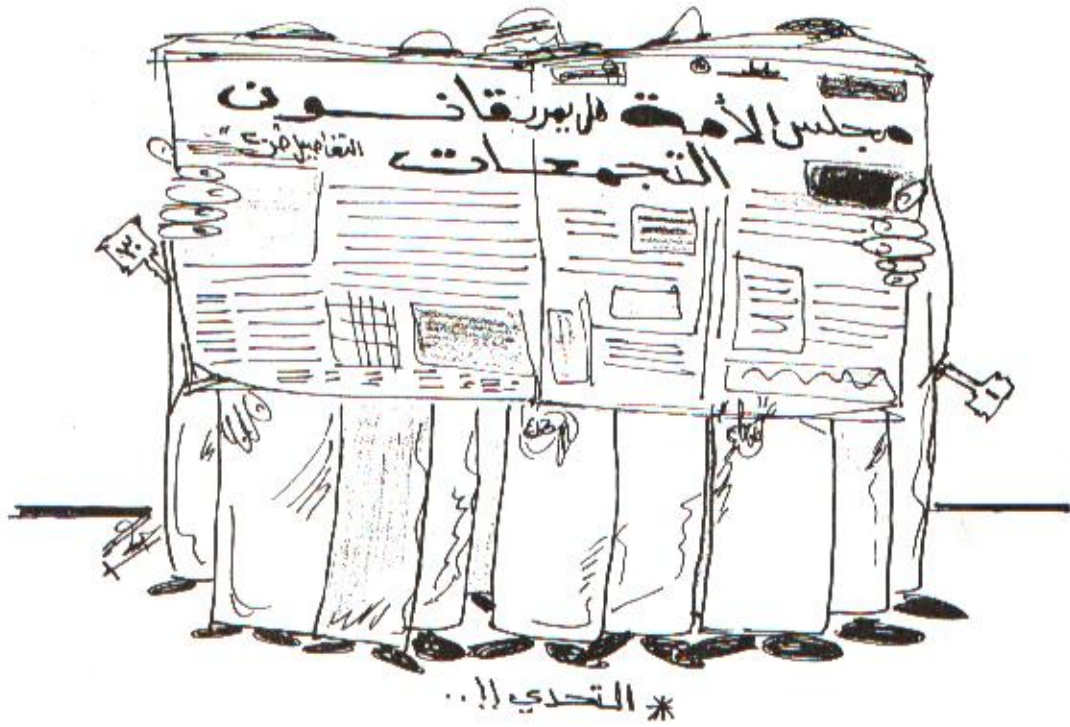 مجلس الأمة هل يمرر قانون
التجمعات
التفاصيل ص٣
٣٠
١
* التحدي !!..